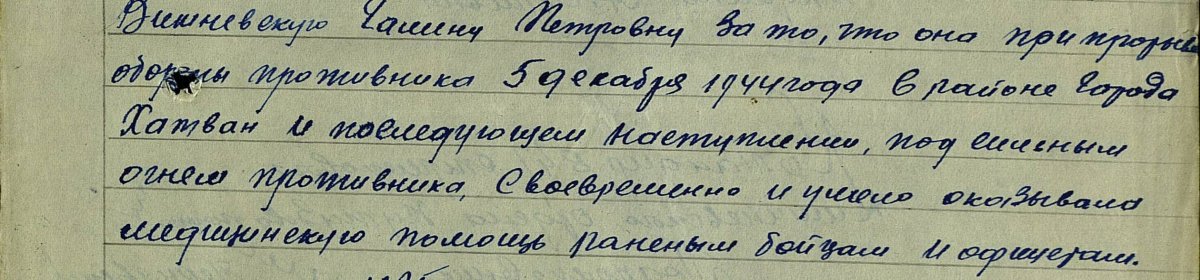 Вишневскую Галину Петровну за то, что она при прорыве
обороны противника 5 декабря 1944 года в районе города
Хатван и последующем наступлении, под сильным
огнем противника, своевременно и умело оказывала
медицинскую помощь раненым бойцам и офицерам.